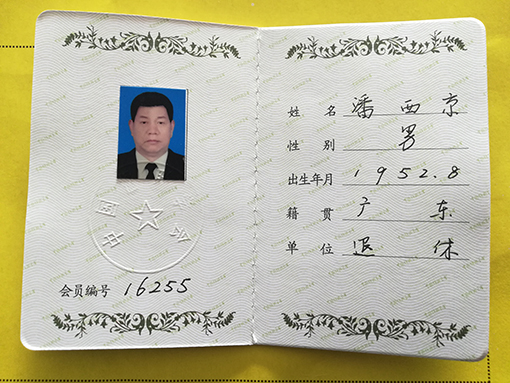 会员编号 16255
姓 名 潘西京
性 别 男
出生年月 1952.8
籍 贯 广 东
单 位 退 休